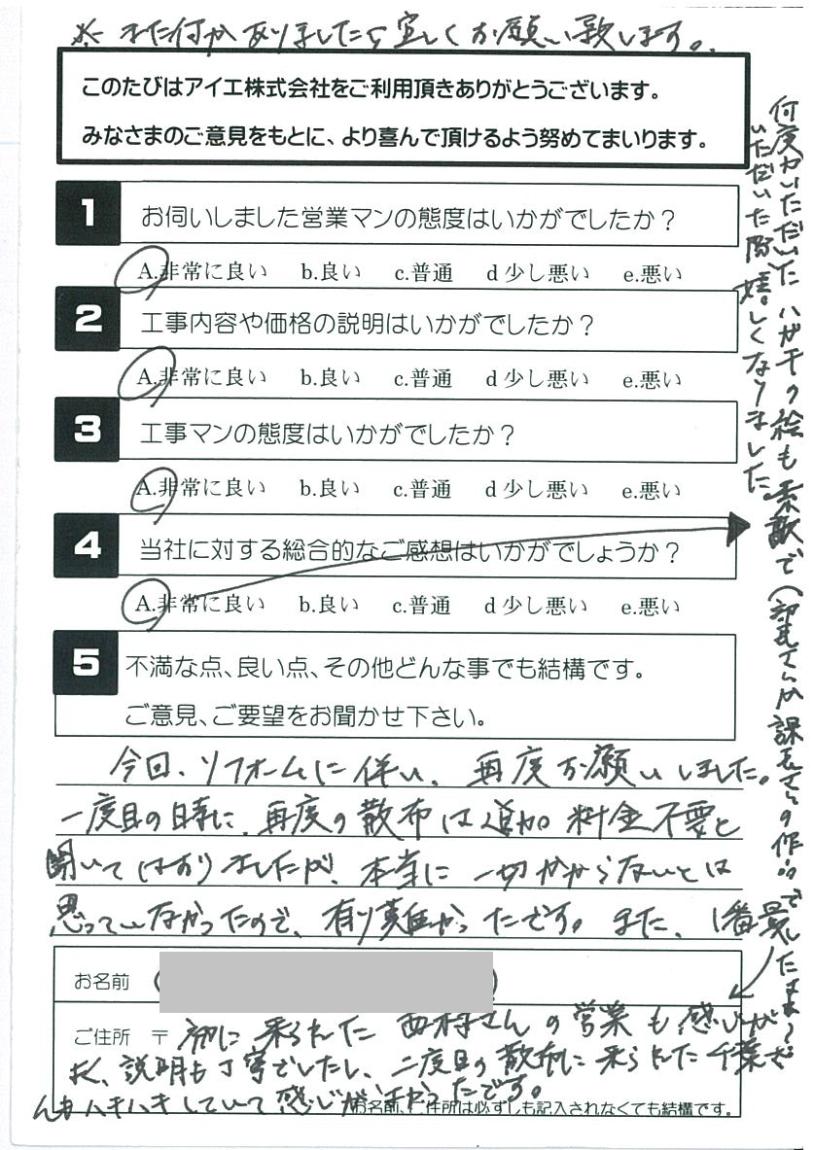 ※また何かありましたら宜しくお願い致します。
このたびはアイエ株式会社をご利用頂きありがとうございます。
みなさまのご意見をもとに、より喜んで頂けるよう努めてまいります。
1 お伺いしました営業マンの態度はいかがでしたか?
A.非常に良い b.良い c.普通 d少し悪い e.悪い
2 工事内容や価格の説明はいかがでしたか?
A.非常に良い b.良い c.普通 d少し悪い e.悪い
3 工事マンの態度はいかがでしたか?
A.非常に良い b.良い c.普通 d少し悪い e.悪い
4 当社に対する総合的なご感想はいかがでしょうか?
A.非常に良い b.良い c.普通 d少し悪い e.悪い
何度かいただいたハガキの絵も素敵で(部長さんか課長さんの作品でしたよね?)
いただいた際、嬉しくなりました。
5 不満な点、良い点、その他どんな事でも結構です。
ご意見、ご要望をお聞かせ下さい。
今回、リフォームに伴い、再度お願いしました。
一度目の時に、再度の散布は追加料金不要と
聞いてはおりましたが、本当に一切かからないとは
思っていなかったので、有り難かったです。また、1番最
お名前 ( )
ご住所 〒
初に来られた西村さんの営業も感じが
よく、説明も丁寧でしたし、二度目の散布に来られた千葉さ
んもハキハキしていて感じが良かったです。
お名前、ご住所は必ずしも記入されなくても結構です。